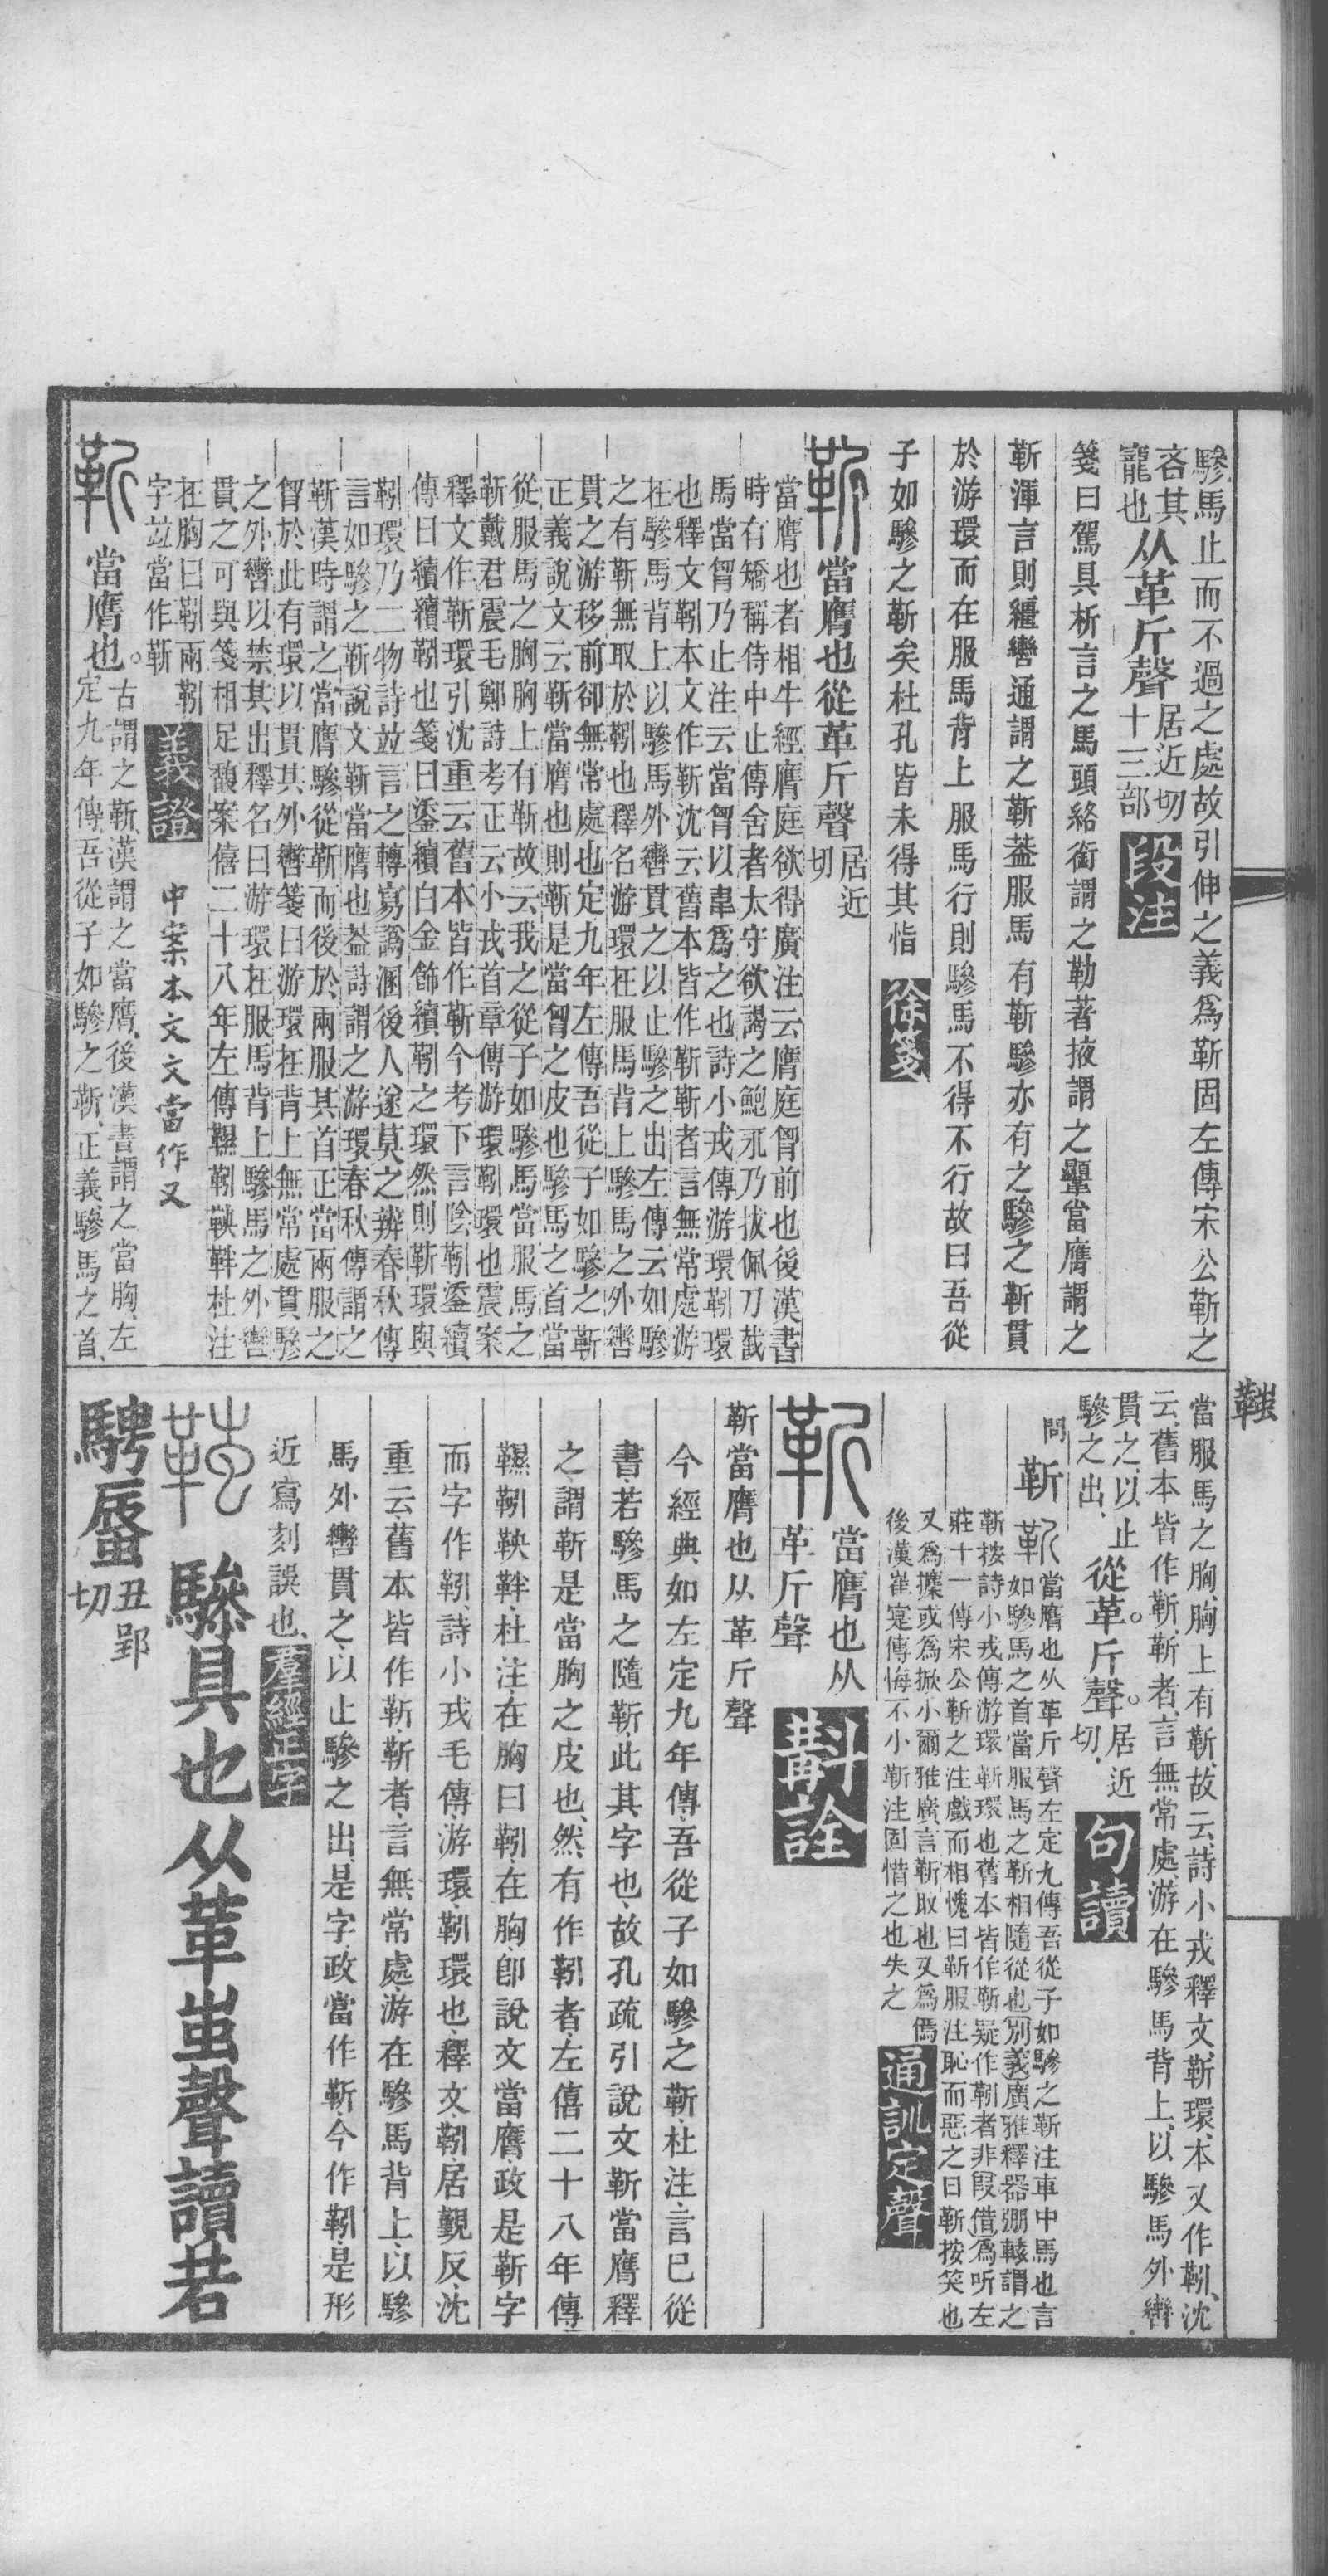 驂馬止而不過之處故引伸之義爲靳固左傳宋公靳之
吝其
寵也从革斤聲居近切
十三部段注
箋曰駕具析言之馬頭絡銜謂之勒著掖謂之䩜當膺謂之
靳渾言則繮轡通謂之靳葢服馬有靳驂亦有之驂之靳貫
於游環而在服馬背上服馬行則驂馬不得不行故曰吾從
子如驂之靳矣杜孔皆未得其恉徐箋
靳當膺也從革斤聲居近
切
當膺也者相牛經膺庭欲得廣注云膺庭胷前也後漢書
時有矯稱侍中止傳舍者太守欲謁之鮑永乃拔佩刀截
馬當胷乃止注云當胷以韋爲之也詩小戎傳游環靷環
也釋文靷本文作靳沈云舊本皆作靳靳者言無常處游
在驂馬背上以驂馬外轡貫之以止驂之出左傳云如驂
之有靳無取於靷也釋名游環在服馬背上驂馬之外轡
貫之游移前卻無常處也定九年左傳吾從子如驂之靳
正義說文云靳當膺也則靳是當胷之皮也驂馬之首當
從服馬之胸胸上有靳故云我之從子如驂馬當服馬之
靳戴君震毛鄭詩考正云小戎首章傳游環靷環也震案
釋文作靳環引沈重云舊本皆作靳今考下言陰靷鋈續
傳曰續續靷也箋曰鋈續白金飾續靷之環然則靳環與
靷環乃二物詩竝言之轉寫譌溷後人遂莫之辨春秋傳
言如驂之靳說文靳當膺也葢詩謂之游環春秋傳謂之
靳漢時謂之當膺驂從靳而後於兩服其首正當兩服之
胷於此有環以貫其外轡箋曰游環在背上無常處貫驂
之外轡以禁其出釋名曰游環在服馬背上驂馬之外轡
貫之可與箋相足馥案僖二十八年左傳韅靷鞅靽杜注
在胸曰靷兩靷
字竝當作靳義證 中案本文文當作又
靳當膺也。古謂之靳、漢謂之當膺、後漢書謂之當胸、左
定九年傳、吾從子如驂之靳、正義、驂馬之首、
當服馬之胸、胸上有靳、故云、詩小戎釋文靳環、本又作靷、沈
云、舊本皆作靳、靳者、言無常處、游在驂馬背上、以驂馬外轡
貫之、以止
驂之出、從革。斤聲。居近
切、句讀
問靳靳當膺也从革斤聲左定九傳吾從子如驂之靳注車中馬也言
如驂馬之首當服馬之靳相隨從也別義廣雅釋器䩸䡺謂之
靳按詩小戎傳游環靳環也舊本皆作靳疑作靷者非叚借爲听左
莊十一傳宋公靳之注戲而相愧曰靳服注恥而惡之曰靳按笑也
又爲攗或爲掀小爾雅廣言靳取也又爲㒟
後漢崔寔傳悔不小靳注固惜之也失之通訓定聲
靳當膺也从
革斤聲斠詮
靳當膺也从革斤聲
今經典如左定九年傳、吾從子如驂之靳、杜注、言巳從
書、若驂馬之隨靳、此其字也、故孔疏引說文靳當膺釋
之、謂靳是當胸之皮也、然有作靷者、左僖二十八年傳、
韅靷鞅靽、杜注、在胸曰靷、在胸、卽說文當膺、政是靳字
而字作靷、詩小戎毛傳、游環、靷環也、釋文、靷、居覲反、沈
重云、舊本皆作靳、靳者、言無常處、游在驂馬背上、以驂
馬外轡貫之、以止驂之出、是字政當作靳、今作靷、是形
近寫刻誤也、羣經正字
䩶驂具也从革䖝聲讀若
騁蜃丑郢
切
䩶